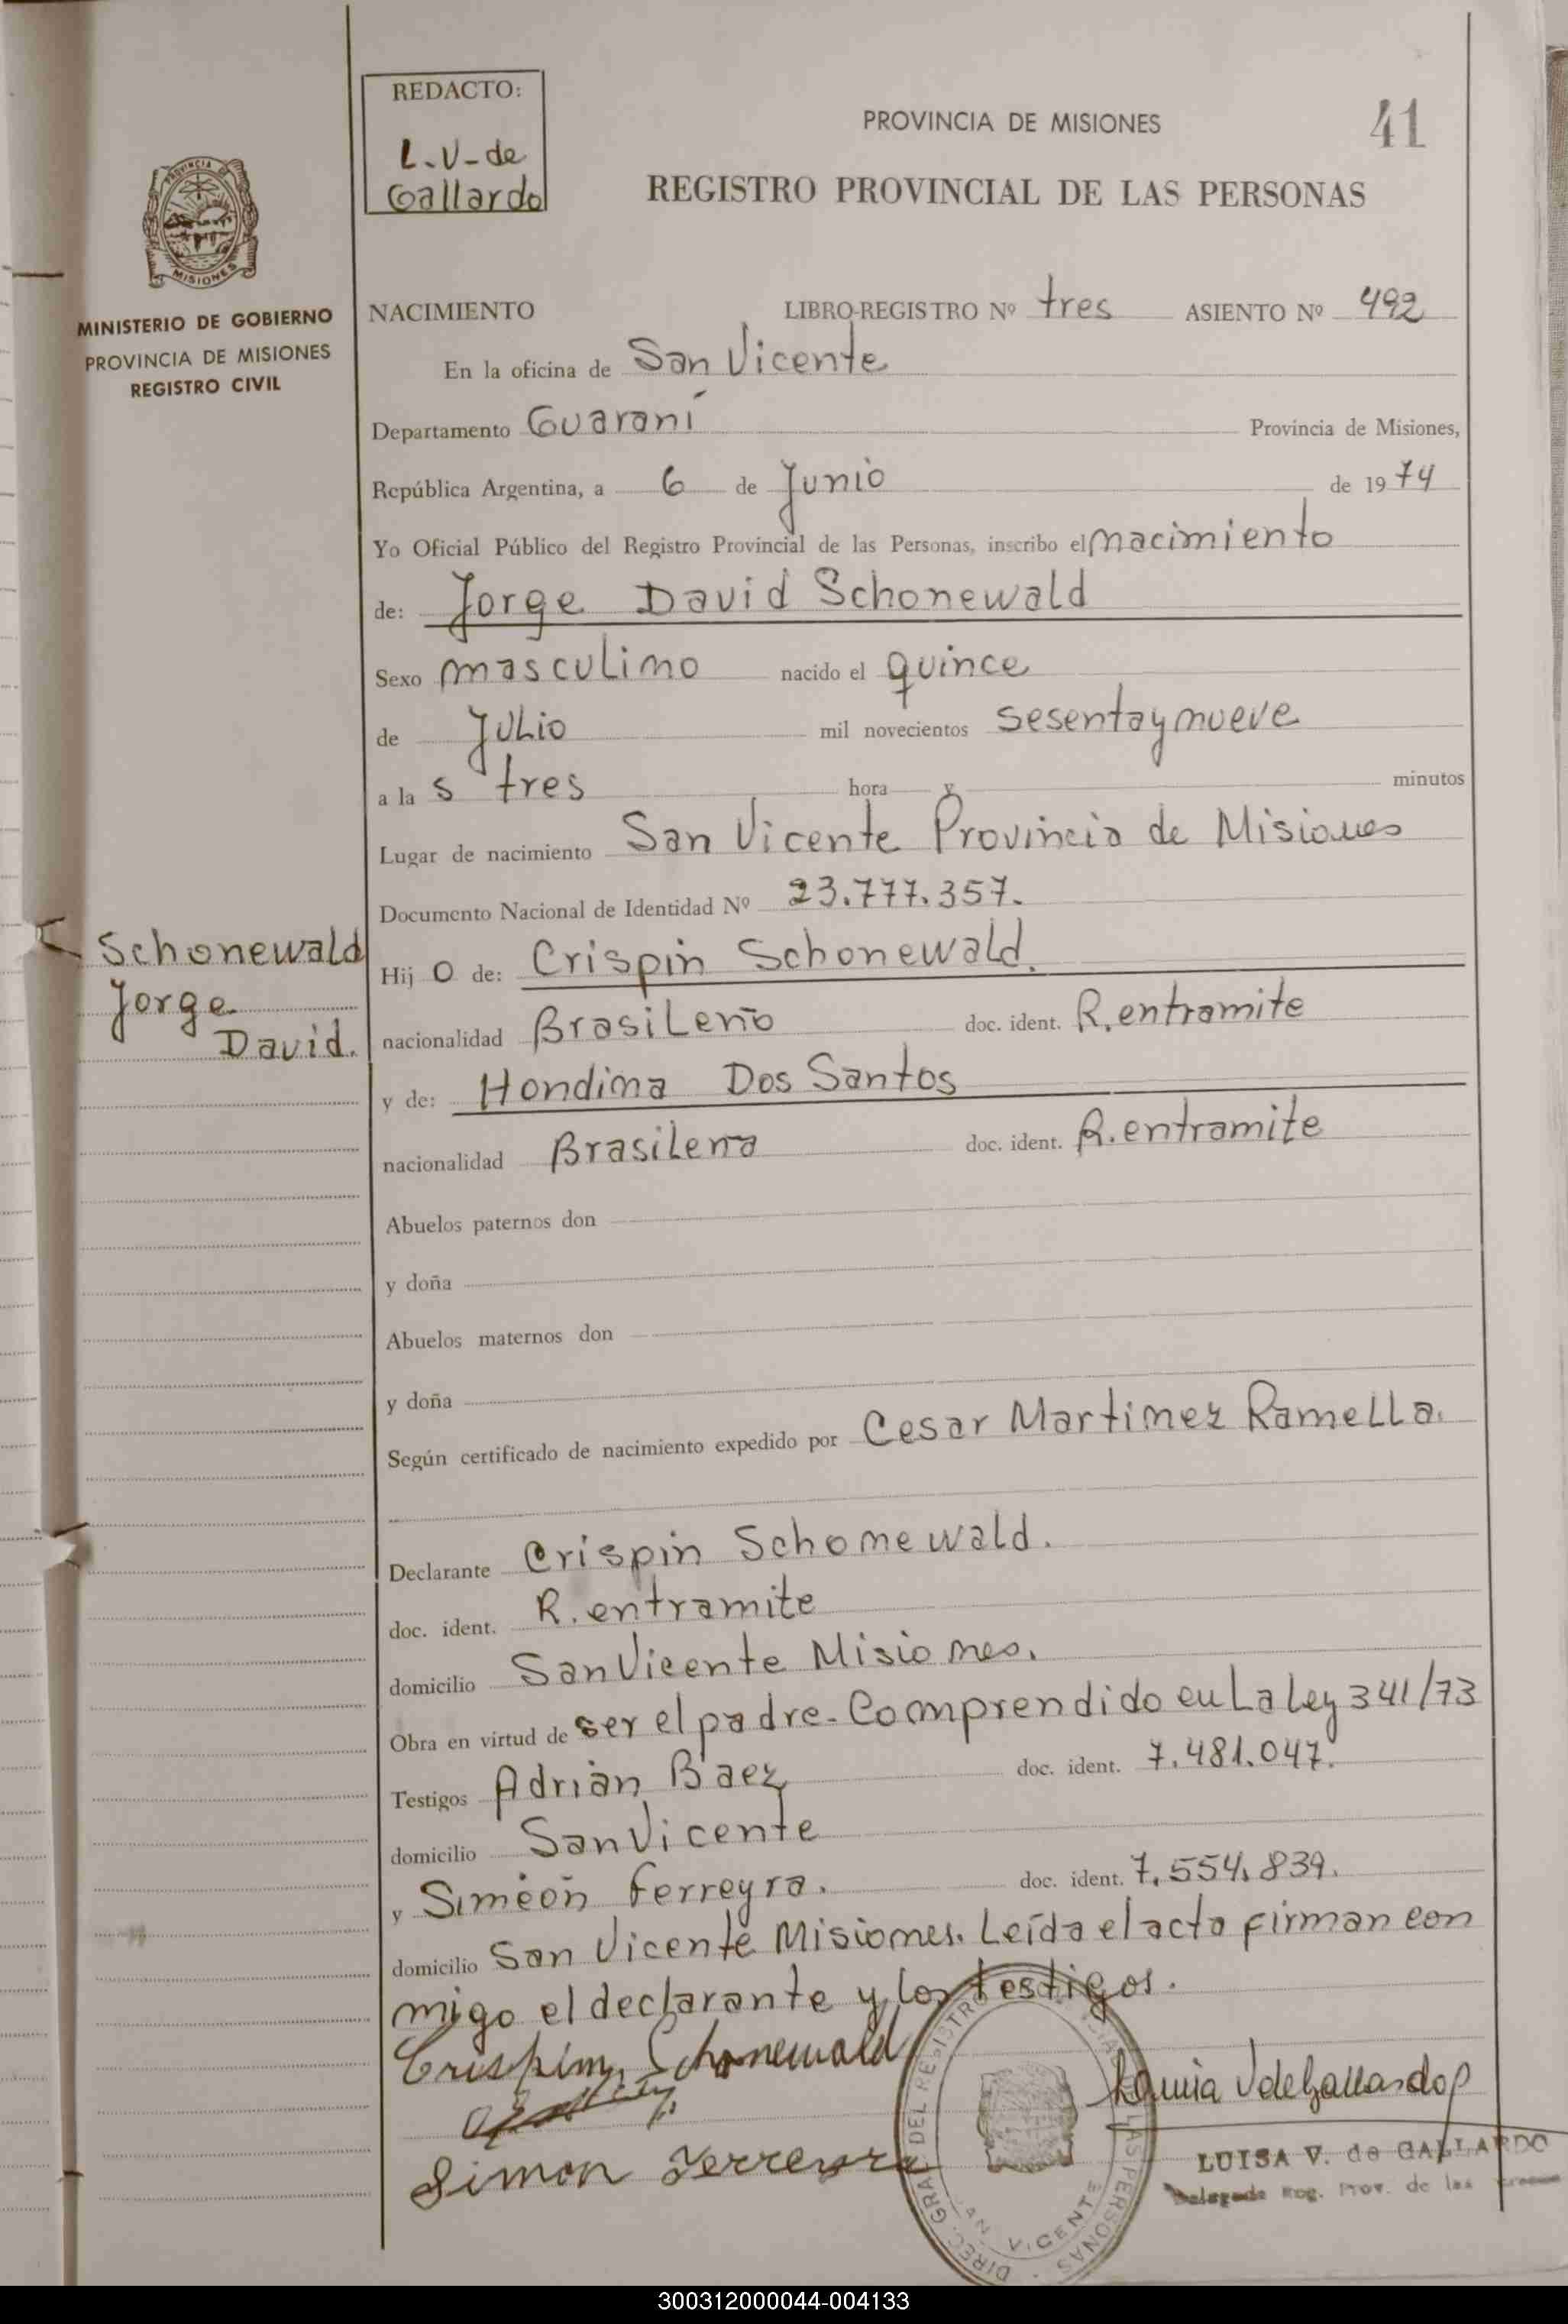 REDACTO:
L.V-de
Gallardo
PROVINCIA DE MISIONES
41
REGISTRO PROVINCIAL DE LAS PERSONAS
PROVINCIA
MISIONES
MINISTERIO DE GOBIERNO
PROVINCIA DE MISIONES
REGISTRO CIVIL
NACIMIENTO LIBRO-REGISTRO Nº tres ASIENTO Nº 492
En la oficina de San Vicente
Departamento Guaraní Provincia de Misiones,
República Argentina, a 6 de Junio de 1974
Yo Oficial Público del Registro Provincial de las Personas, inscribo el nacimiento
de: Jorge David Schonewald
Sexo masculino nacido el quince
de Julio mil novecientos sesentaynueve
a la s tres hora y minutos
Lugar de nacimiento San Vicente Provincia de Misiones
Documento Nacional de Identidad Nº 23.777.357.
Schonewald
Jorge
David.
Hij o de: Crispin Schonewald.
nacionalidad Brasileño doc. ident. R. entramite
y de: Hondina Dos Santos
nacionalidad Brasileña doc. ident. R. entramite
Abuelos paternos don
y doña
Abuelos maternos don
y doña
Según certificado de nacimiento expedido por Cesar Martinez Ramella.
Declarante Crispin Schonewald.
doc. ident. R. entramite
domicilio San Vicente Misiones.
Obra en virtud de ser el padre. Comprendido en La Ley 341/73
Testigos Adrián Baez doc. ident. 7.481.047.
domicilio San Vicente
y Simeón Ferreyra. doc. ident. 7.554.839.
domicilio San Vicente Misiones. Leída el acta firman con
migo el declarante y los testigos.
Crispim Schonewald
Simon Ferreyra
Luisa V de Gallardo
LUISA V. de GALLARDO
Delegada Reg. Prov. de las
DIREC. GRAL DEL REGISTRO LAS PERSONAS
SAN VICENTE
300312000044-004133